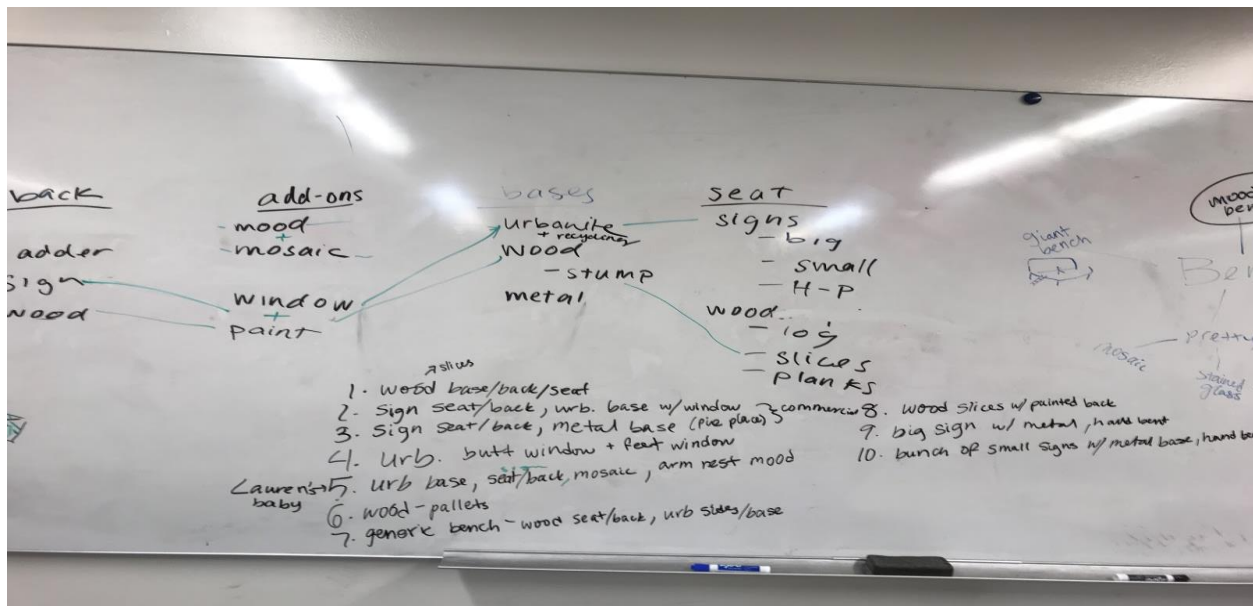 back
adder
sign
wood
add-ons
mood
+
mosaic
window
+
paint
bases
urbanite
+ recycling
wood
- stump
metal
seat
signs
- big
- small
- H-P
wood
- log
- slices
- planks
giant
bench
mood
ben
Ben
pretty
mosaic
stained
glass
slices
1. wood base/back/seat
2. sign seat/back, urb. base w/window
3. sign seat/back, metal base (pix place)
commercial
4. urb. butt window + feet window
Lauren's → 5. urb base, seat/back, mosaic, arm rest mood
baby
6. wood-pallets
7. generic bench - wood seat/back, urb sides/base
8. wood slices w/ painted back
9. big sign w/ metal, hand bent
10. bunch of small signs w/ metal base, hand be